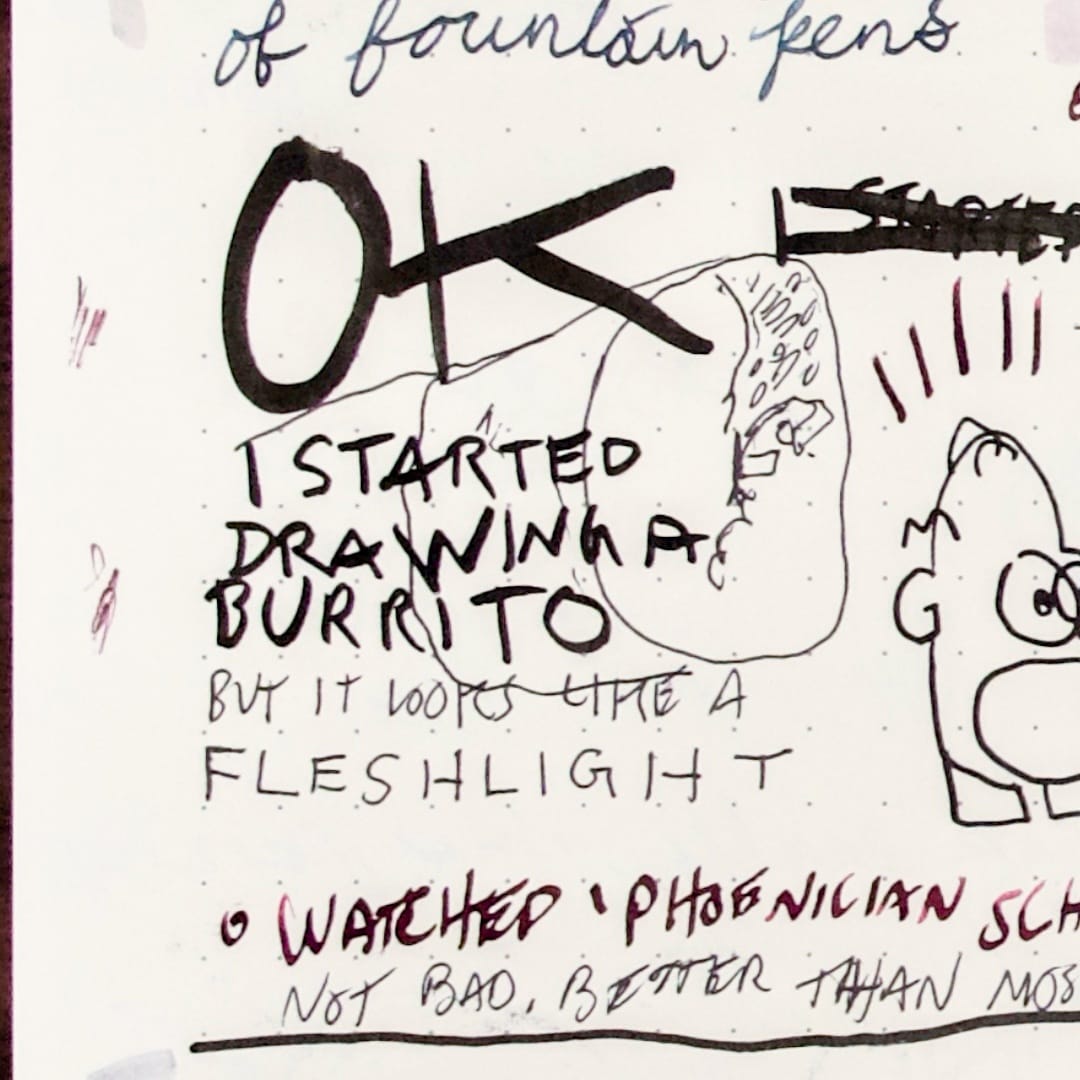 of fountain pens
OK
I STARTED
DRAWING A
BURRITO
BUT IT LOOKS LIKE A
FLESHLIGHT
WATCHED 'PHOENICIAN SCH
NOT BAD. BETTER THAN MOS